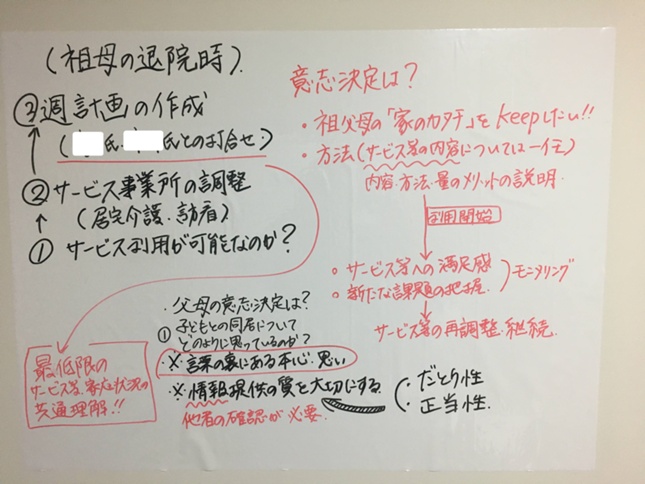 (祖母の退院時).
③週計画の作成
(氏.氏との打合せ)
②サービス事業所の調整
(居宅介護.訪看)
①サービス利用が可能なのか?
最低限の
サービス等.家族状況の
共通理解!!
意志決定は?
・祖父母の「家のカタチ」をkeepしたい!!
・方法(サービス等の内容については一任)
内容.方法.量のメリットの説明.
利用開始
・サービス等への満足感
・新たな課題の把握.
モニタリング
サービス等の再調整.継続.
・父母の意志決定は?
①子どもとの同居について
どのように思っているのか?
・※言葉の裏にある本心.思い
・※情報提供の質を大切にする.
他者の確認が必要.
・だとり性
・正当性.